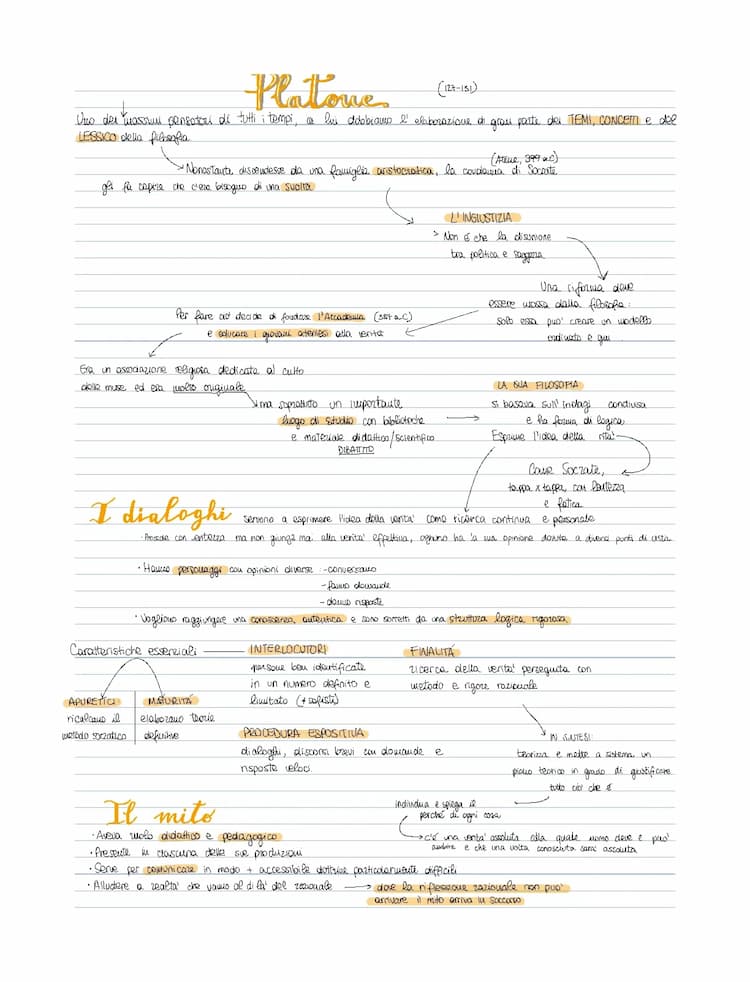 Platone
(127-151)
Uno dei massimi pensatori di tutti i tempi, a lui dobbiamo l'elaborazione di gran parte dei TEMI, CONCETTI e del
LESSICO della filosofia
Nonostante discendesse da una famiglia aristocratica, la condanna di Socrate
(Atene, 399 a.C)
gli fa capire che c'era bisogno di una svolta
L'INGIUSTIZIA
> Non è che la disunione
tra politica e saggezza
Una riforma deve
essere mossa dalla filosofia:
solo essa puo' creare un modello
ordinato e
Per fare ciò decide di fondare l'Accademia (387 a.C)
e educare i giovani ateniesi alla verità
Era un associazione religiosa dedicata al culto
delle muse ed era molto originale
ma soprattutto un importante
luogo di studio con biblioteche
e materiale didattico/scientifico
DIBATTITO
LA SUA FILOSOFIA
si basava sull'indagi condivisa
e ha forma di logica
Esprime l'idea della
Come Socrate,
tappa x tappa, con lentezza
e fatica
I dialoghi
servono a esprimere l'idea della verita' come ricerca continua e personale
· Procede con ma non giunge mai alla verita' effettiva, ognuno ha la sua opinione dovuta a diversi punti di vista
· Hanno personaggi con opinioni diverse: -conversano
-fanno domande
-danno risposte
· Vogliono raggiungere una conoscenza autentica e sono sorretti da una struttura logica rigorosa
Caratteristiche essenziali
INTERLOCUTORI
persone ben identificate
in un numero definito e
limitato (+ sofisti)
FINALITÁ
ricerca della verita' perseguita con
metodo e rigore razionale
APURETICI
ricalcano il
metodo socratico
MATURITÁ
elaborano teorie
definitive
PROCEDURA ESPOSITIVA
dialoghi, discorsi brevi con domande e
risposte veloci.
IN SINTESI:
teorizza e mette a sistema un
piano teorico in grado di giustificare
tutto ciò che è
individua e spiega il
perché di ogni cosa
c'è una verita' assoluta alla quale uomo deve e puo'
ambire e che una volta conosciuta sarà assoluta
Il mito
· Aveva ruolo didattico e pedagogico
· Presente in ciascuna delle sue produzioni
· Serve per comunicare in modo + accessibile dottrine particolarmente difficili
· Alludere a realta' che vanno al di là del razionale
dove la riflessione razionale non puo'
arrivare il mito arriva in soccorso